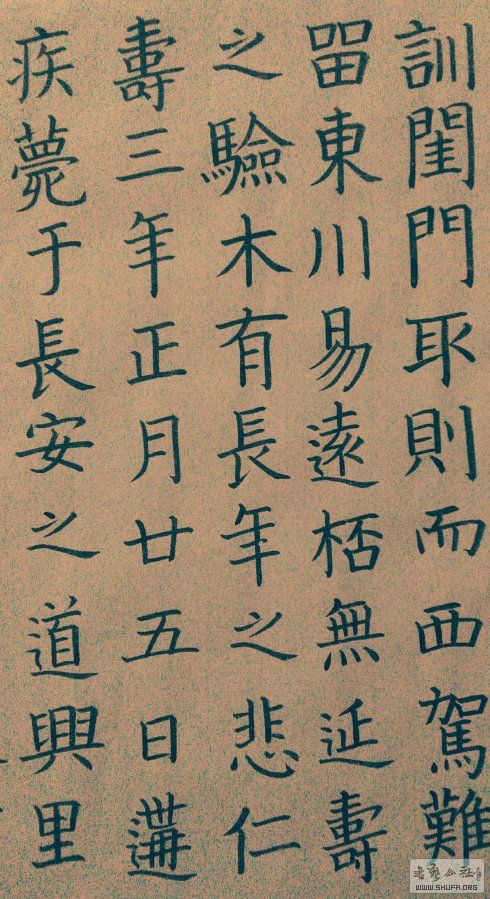 訓閨門耴則而西駕難
留東川易遠栝無延壽
之驗木有長年之悲仁
壽三年正月廿五日遘
疾薨于長安之道興里
书艺公社
WWW.SHUFA.ORG